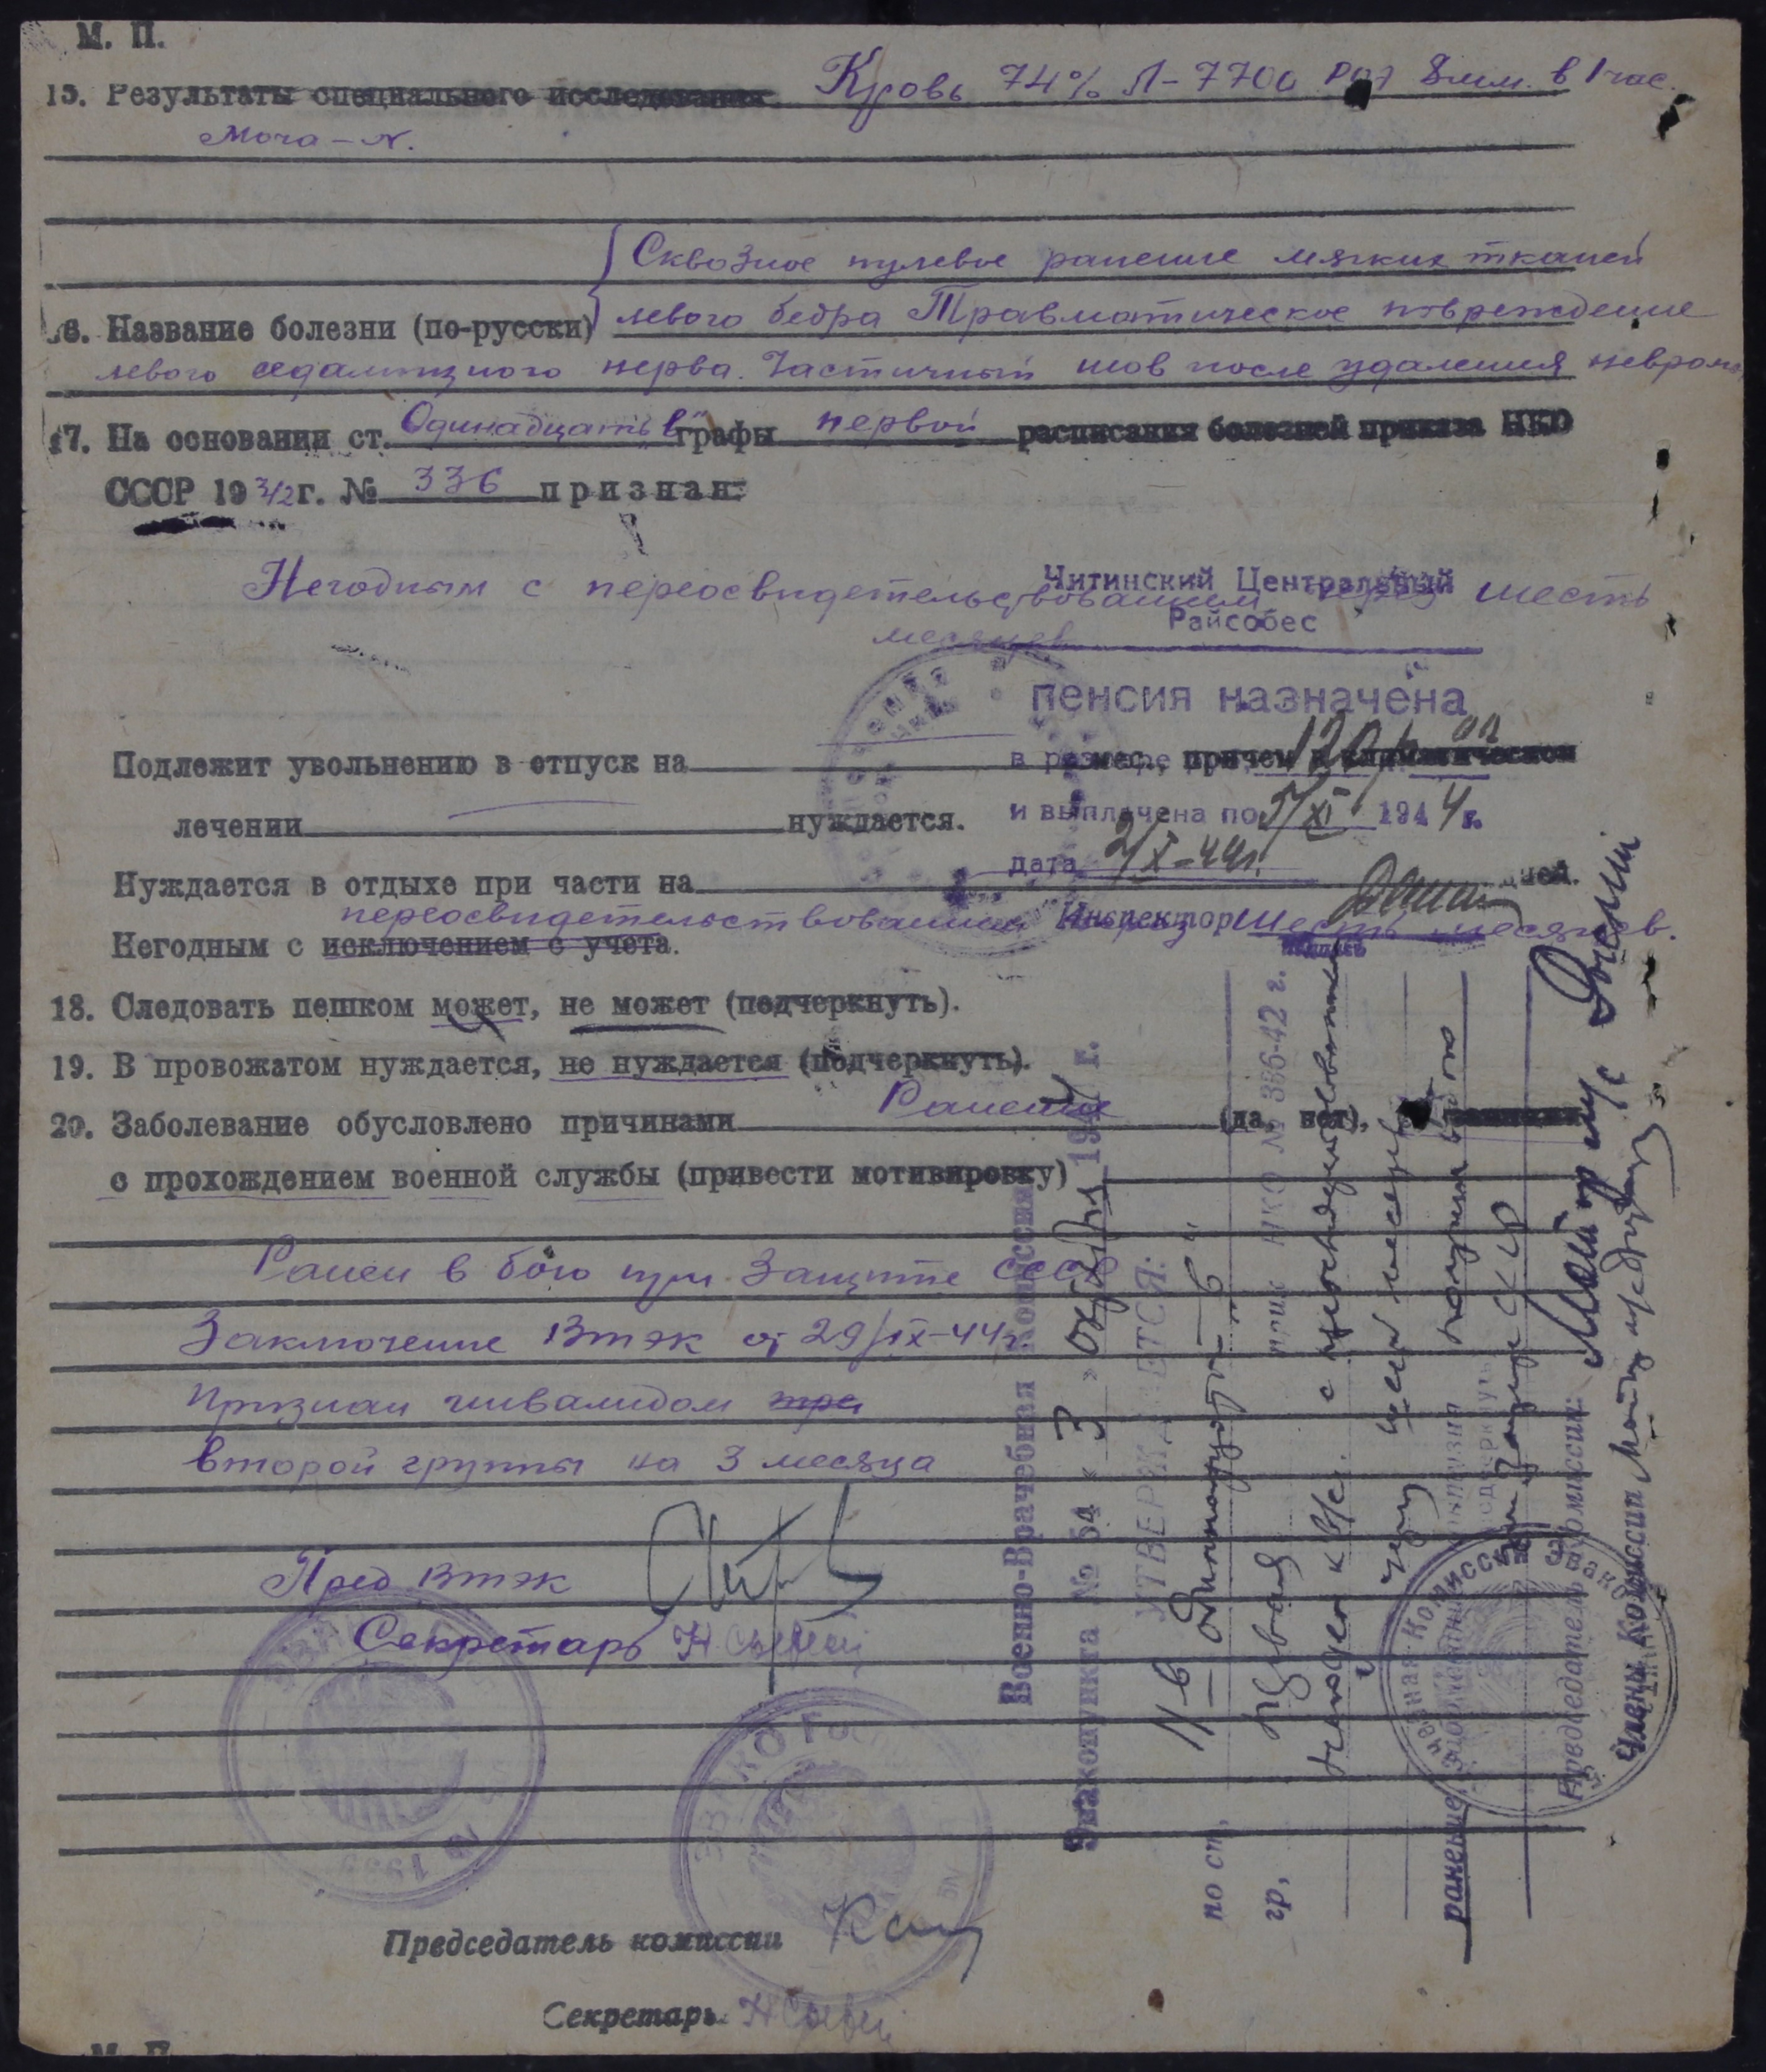 М. П.
15. Результаты специального исследования Кровь 74% Л-7700 РОЭ 8мм. в 1 час.
Моча - N.
Сквозное пулевое ранение мягких тканей
16. Название болезни (по-русски) левого бедра Травматическое повреждение
левого седалищного нерва. Частичный шов после удаления невромы
17. На основании ст. Одинадцать "в" графы первой расписания болезней приказа НКО
СССР 1942 г. № 336 признан:
Негодным с переосвидетельствованием через шесть
месяцев
Читинский Центральный
Райсобес
пенсия назначена
Подлежит увольнению в отпуск на мес., причем в климатическом
в размере 120 р. 00
лечении нуждается.
и выплачена по 1/XI 1944 г.
Дата 2/X-44г.
Нуждается в отдыхе при части на дней.
Инспектор
переосвидетельствованием через шесть месяцев.
Негодным с исключением с учета.
18. Следовать пешком может, не может (подчеркнуть).
19. В провожатом нуждается, не нуждается (подчеркнуть).
20. Заболевание обусловлено причинами Ранение (да, нет),
с прохождением военной службы (привести мотивировку)
Ранен в бою при защите СССР
Заключение Втэк от 29/IX-44г.
Признан инвалидом тре
второй группы на 3 месяца
Пред Втэк
Секретарь
Председатель комиссии
Секретарь
М. П.
Военно-Врачебная Комиссия
Эвакопункта № 54 " 3 " октября 1944 г.
УТВЕРЖДАЕТСЯ:
по ст, 11-в Одиннадцать - "в"
гр, первая прик НКО № 336-42 г.
негоден к в/сл. с переосвидетельств.
через шесть месяцев
ранение, контузия получена в бою
подчеркнуть при защите СССР
Председатель комиссии: Майор м/с
Члены Комиссии Майор м/с